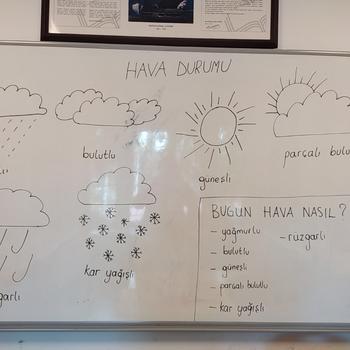 HAVA DURUMU
bulutlu
güneşli
parçalı bulu
kar yağışlı
BUGÜN HAVA NASIL?
- yağmurlu
- ruzgarlı
- bulutlu
- güneşli
- parçalı bulutlu
- kar yağışlı